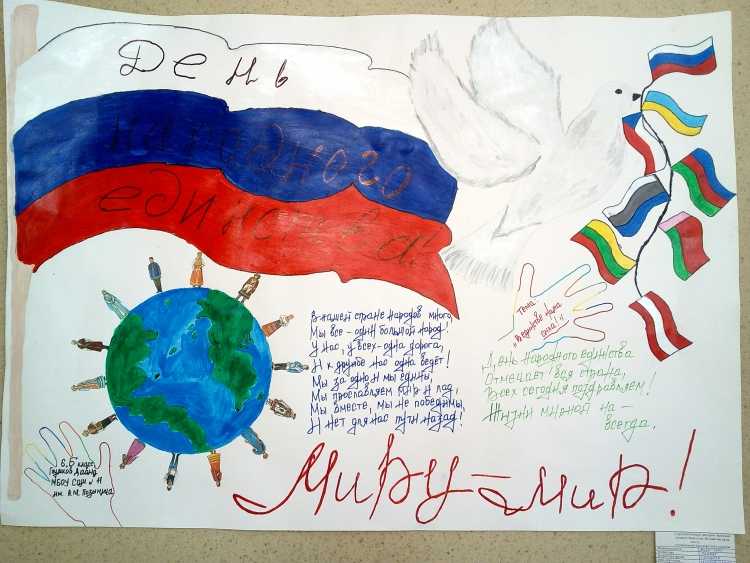 День
народного
единства!
В нашей стране народов много,
Мы все - один большой народ!
У нас, у всех - одна дорога,
И к дружбе нас она ведёт!
Мы за одно и мы едины,
Мы прославляем мир и лад,
Мы вместе, мы не победимы,
И нет для нас пути назад!
Тема:
"В единстве наша
сила!"
День народного единства
Отмечает вся страна,
Всех сегодня поздравляем!
Жизни мирной на-
всегда.
6Б класс
МБОУ СОШ № 11
Миру - мир!